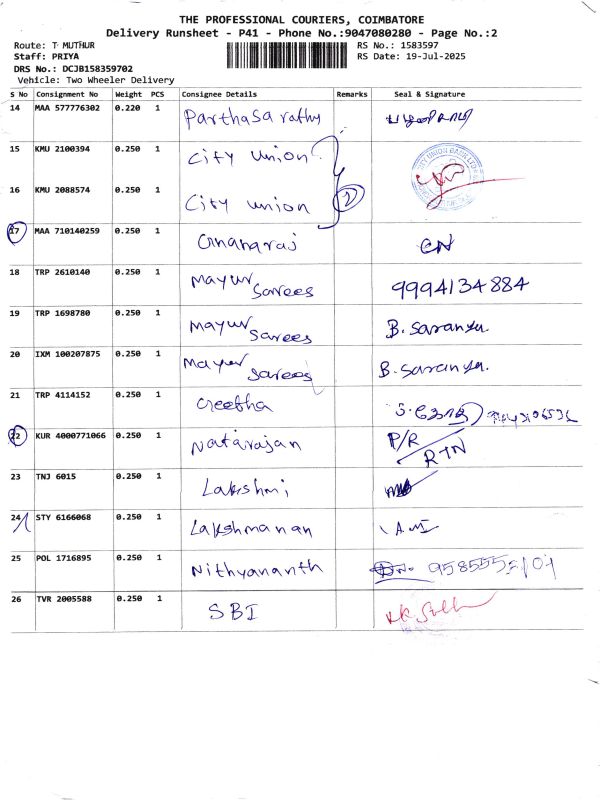 THE PROFESSIONAL COURIERS, COIMBATORE
Delivery Runsheet - P41 - Phone No.:9047080280 - Page No.:2
Route: T MUTHUR
RS No.: 1583597
Staff: PRIYA
RS Date: 19-Jul-2025
DRS No.: DCJB158359702
Vehicle: Two Wheeler Delivery
S No Consignment No Weight PCS Consignee Details Remarks Seal & Signature
14 MAA 577776302 0.220 1 Parthasarathy
15 KMU 2100394 0.250 1 City Union
16 KMU 2088574 0.250 1 City Union 2
17 MAA 710140259 0.250 1 Gnanaraj
18 TRP 2610140 0.250 1 Mayur Sarees 9994134884
19 TRP 1698780 0.250 1 Mayur Sarees B. Saranya
20 IXM 100207875 0.250 1 Mayur Sarees B. Saranya.
21 TRP 4114152 0.250 1 Creetha
22 KUR 4000771066 0.250 1 Natarajan P/R RTN
23 TNJ 6015 0.250 1 Lakshmi
24 STY 6166068 0.250 1 Lakshmanan
25 POL 1716895 0.250 1 Nithyananth
26 TVR 2005588 0.250 1 SBI